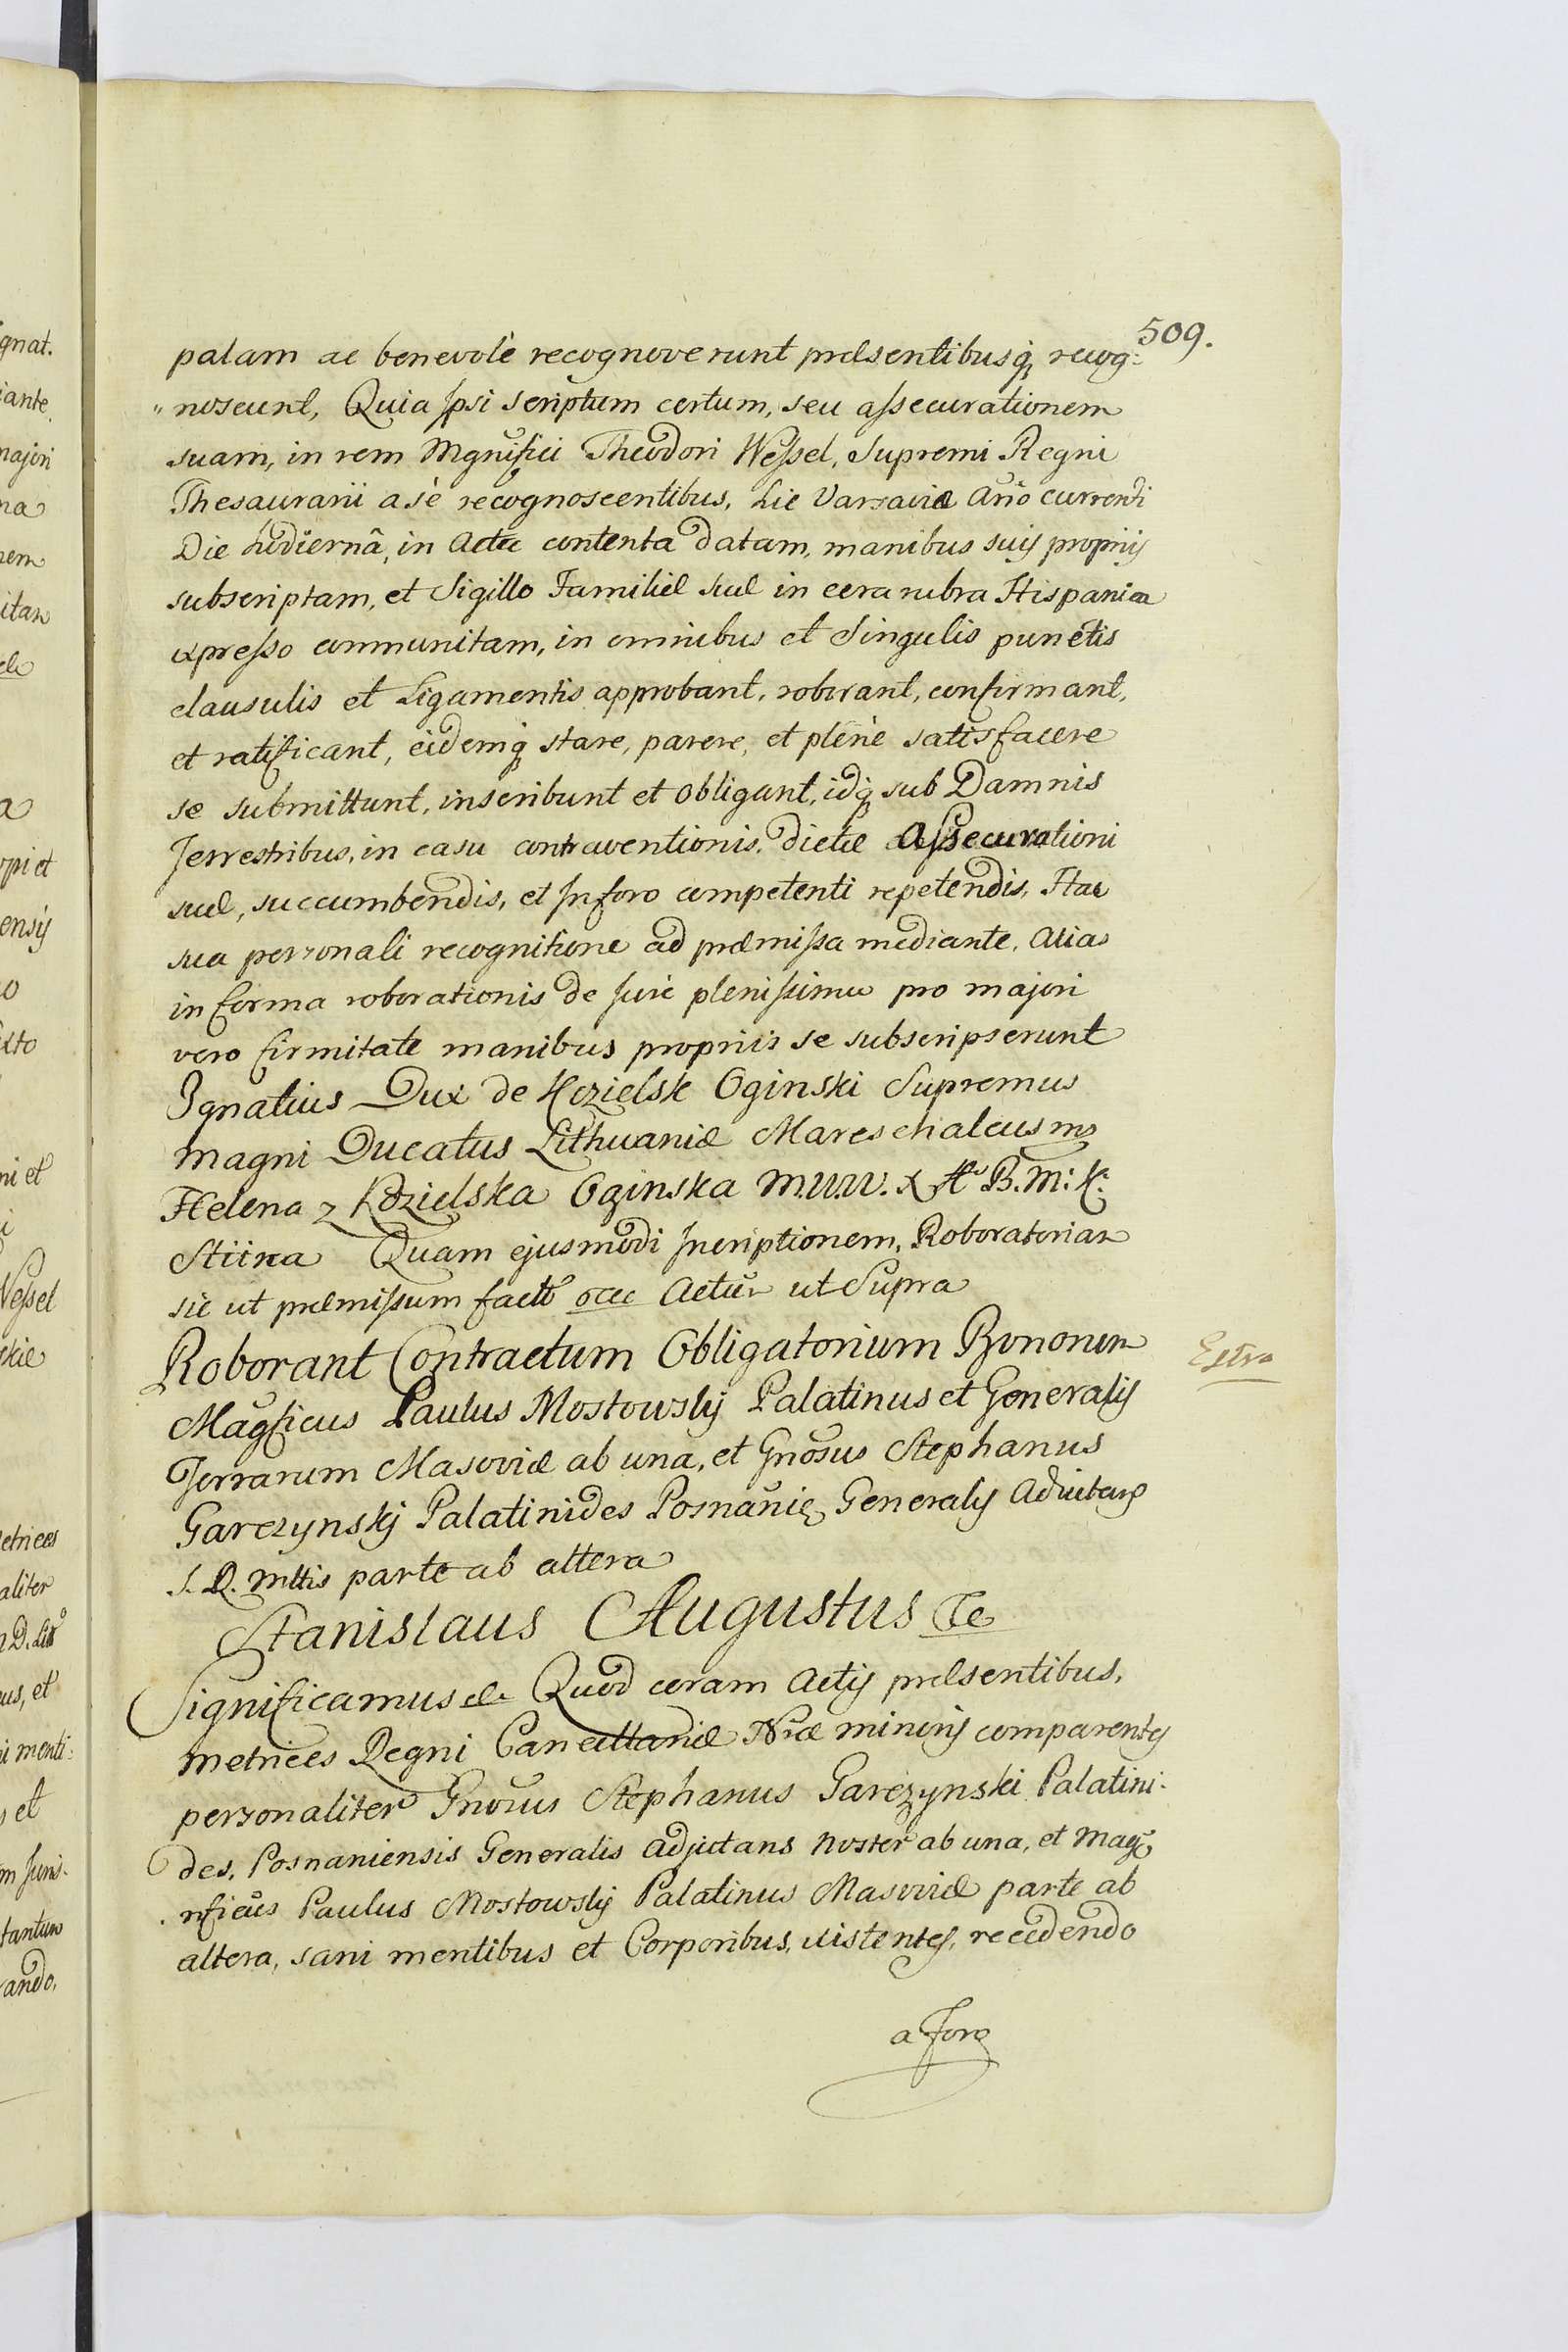 509.
palam ac benevolè recognoverunt præsentibusq; recog:
"noscunt, Quia Ipsi scriptum certum, seu assecurationem
suam, in rem Mgnifici Theodori Wessel, Supremi Regni
Thesaurarii a sè recognoscentibus, hic Varsaviæ Año currenti
Die hodiernâ, in Actu contenta datam, manibus suis proprijs
subscriptam, et Sigillo Familiæ suæ in cera rubra Hispanica
expresso communitam, in omnibus et Singulis punctis
clausulis et Ligamentis approbant, roborant, confirmant,
et ratificant, eidemq; stare, parere, et plenè satisfacere
se submittunt, inscribunt et obligant, idq; sub Damnis
Terrestribus, in casu contraventionis. dictæ Assecurationi
suæ, succumbendis, et In foro competenti repetendis, Hac
sua personali recognitione ad præmissa mediante. Acta
in forma roborationis de Jure plenissima pro majori
vero firmitate manibus propriis se subscripserunt
Ignatius Dux de Kozielsk Oginski Supremus
Magni Ducatus Lithuaniæ Mareschalcus mp
Helena z Kozielska Oginska M.W.W. X. B. M: K:
Quam ejusmodi Inscriptionem, Roboratoriam
sic ut præmissum facto Actum ut Supra
Roborant Contractum Obligatorium Bononem
Magficus Paulus Mostowskj Palatinus et Generalis
Terrarum Masoviæ ab una, et Gnosus Stephanus
Garczynskj Palatinides Posnaniæ Generalis Adjutans
S. R. Mttis parte ab altera
Extra
Stanislaus Augustus &c
Significamus &c. Quod coram Actis præsentibus,
Metrices Regni Cancellariæ Nræ minoris comparentes
personaliter Gnosus Stephanus Garczynski Palatini:
des, Posnaniensis Generalis Adjutans Noster ab una, et Mag:
nficus Paulus Mostowskj Palatinus Masoviæ parte ab
altera, sani mentibus et Corporibus, existentes, recedendo
a Foro